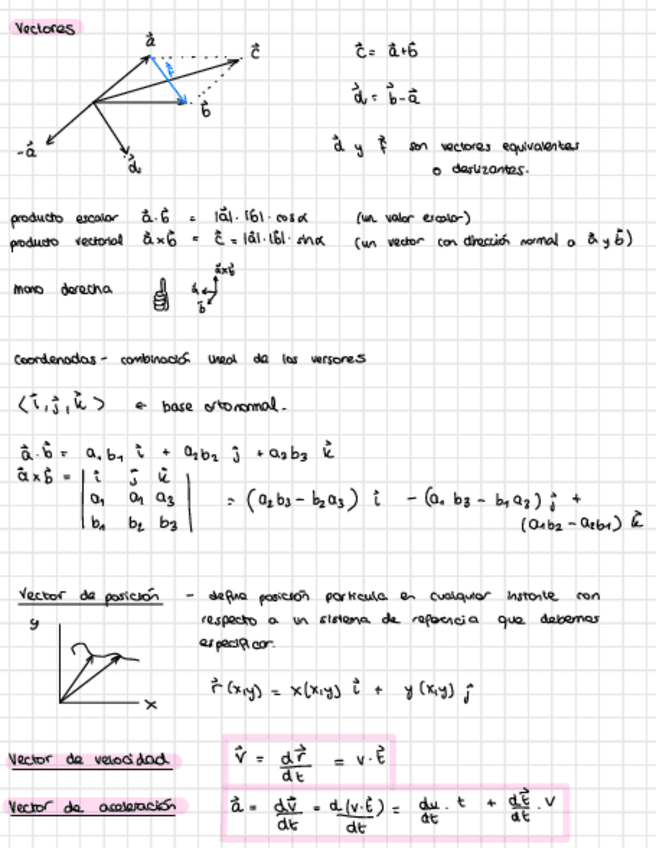 Vectores
a⃗
c⃗
b⃗
-a⃗
d⃗
c⃗ = a⃗+b⃗
d⃗ = b⃗-a⃗
d⃗ y f⃗ son vectores equivalentes
o deslizantes.
producto escalar a⃗·b⃗ = |a⃗|·|b|·cosα (un valor escalar)
producto vectorial a⃗×b⃗ = c⃗ = |a⃗|·|b|·sinα (un vector con dirección normal a a⃗ y b⃗)
mano derecha
a⃗×b⃗
a⃗
b⃗
Coordenadas - combinación lineal de los versores
⟨i⃗, j⃗, k⃗⟩ ← base ortonormal.
a⃗·b⃗ = a₁b₁ i⃗ + a₂b₂ j⃗ + a₃b₃ k⃗
a⃗×b⃗ = | i⃗ j⃗ k⃗ |
| a₁ a₁ a₃ | = (a₂b₃ - b₂a₃) i⃗ - (a₁b₃ - b₁a₃) j⃗ +
| b₁ b₂ b₃ | (a₁b₂ - a₂b₁) k⃗
Vector de posición - define posición partícula en cualquier instante con
respecto a un sistema de referencia que debemos
especificar.
y
x
r⃗(x,y) = x(x,y) i⃗ + y(x,y) j⃗
Vector de velocidad v⃗ = dr⃗/dt = v·t⃗
Vector de aceleración a⃗ = dv⃗/dt = d(v·t⃗)/dt = du/dt · t + dt⃗/dt · v